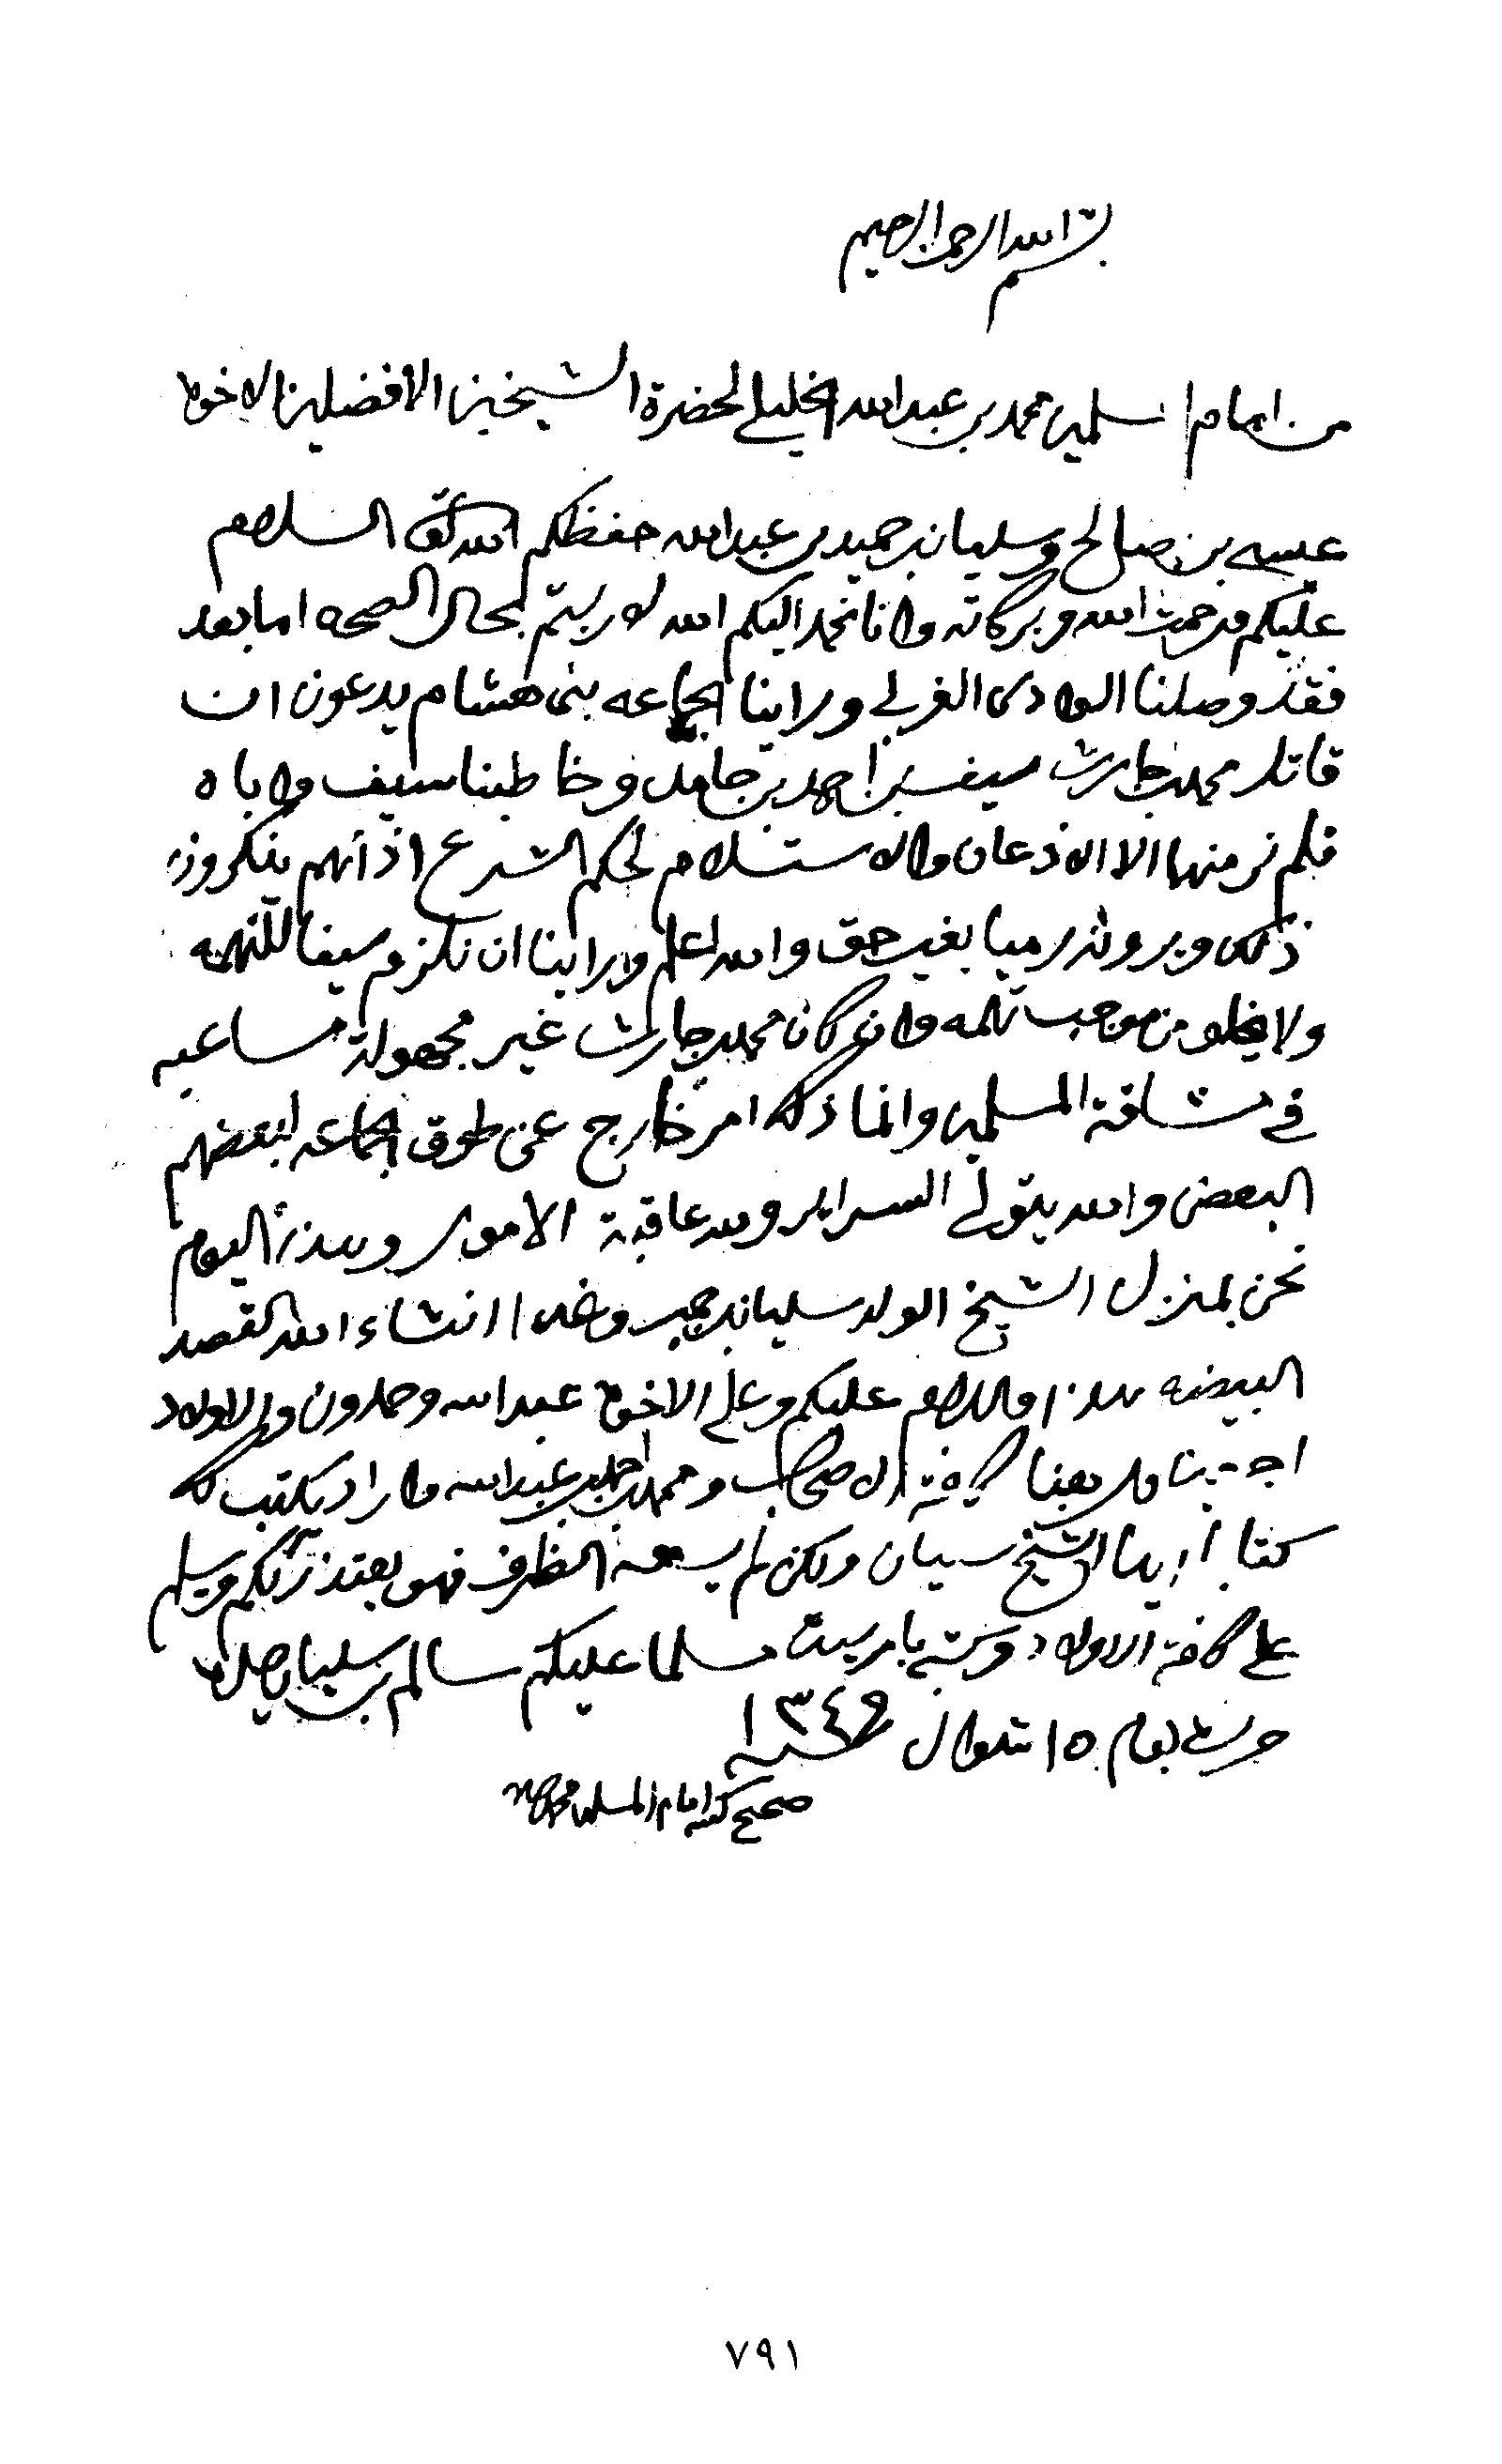 بسم الله الرحمن الرحيم
من امام المسلمين محمد بن عبدالله الخليلي لحضرة الشيخين الافضلين الاخوين
عيسى بن صالح وسليمان بن حمير بن عبدالله حفظكم الله تعالى السلام
عليكم ورحمت الله وبركاته وانا نحمد اليكم الله لا زلتم بحال الصحه اما بعد
فقد وصلنا الوادي الغربي وراينا الجماعه بني هشام يدعون ان
قاتل محمد بن حارث سيف بن احمد بن حامد وخاطبنا سيف واباه
فلم نر منهما الا الاذعان والاستسلام لحكم الشرع اذ انهم ينكرون
ذلك ويرونه رميا بغير حق والله اعلم وراينا ان نلزم سيفا للتهمه
ولا يخلو من موجب تلمه وان كان محمد بن حارث غير مجهولة مساعيه
في مشاقة المسلمين وانما ذلك امر خارج عن طوق الجماعه لبعضهم
البعض والله يتولى السراير ولله عاقبة الامور وهذا اليوم
نحن بمنزل الشيخ الولد سليمان بن حمير وغدا انشاء الله القصد
البيضه هذا والسلام عليكم وعلى الاخوان عبدالله وحمدون والاولاد
اجمعين ومن معنا كافة الاصحاب ومحمد بن احمد بن عبدالله واراد يكتب لك
كتابا ايها الشيخ سليمان ولكن لم يسعه الظرف فهو يعتذر لكم ويسلم
على كافة الاولاد وكتبه بامرهم مسلما عليكم سالم بن سليمان
حرر يوم ١٥ شوال سنه ١٣٤٩
صحيح كتبه امام المسلمين محمد
٧٩١